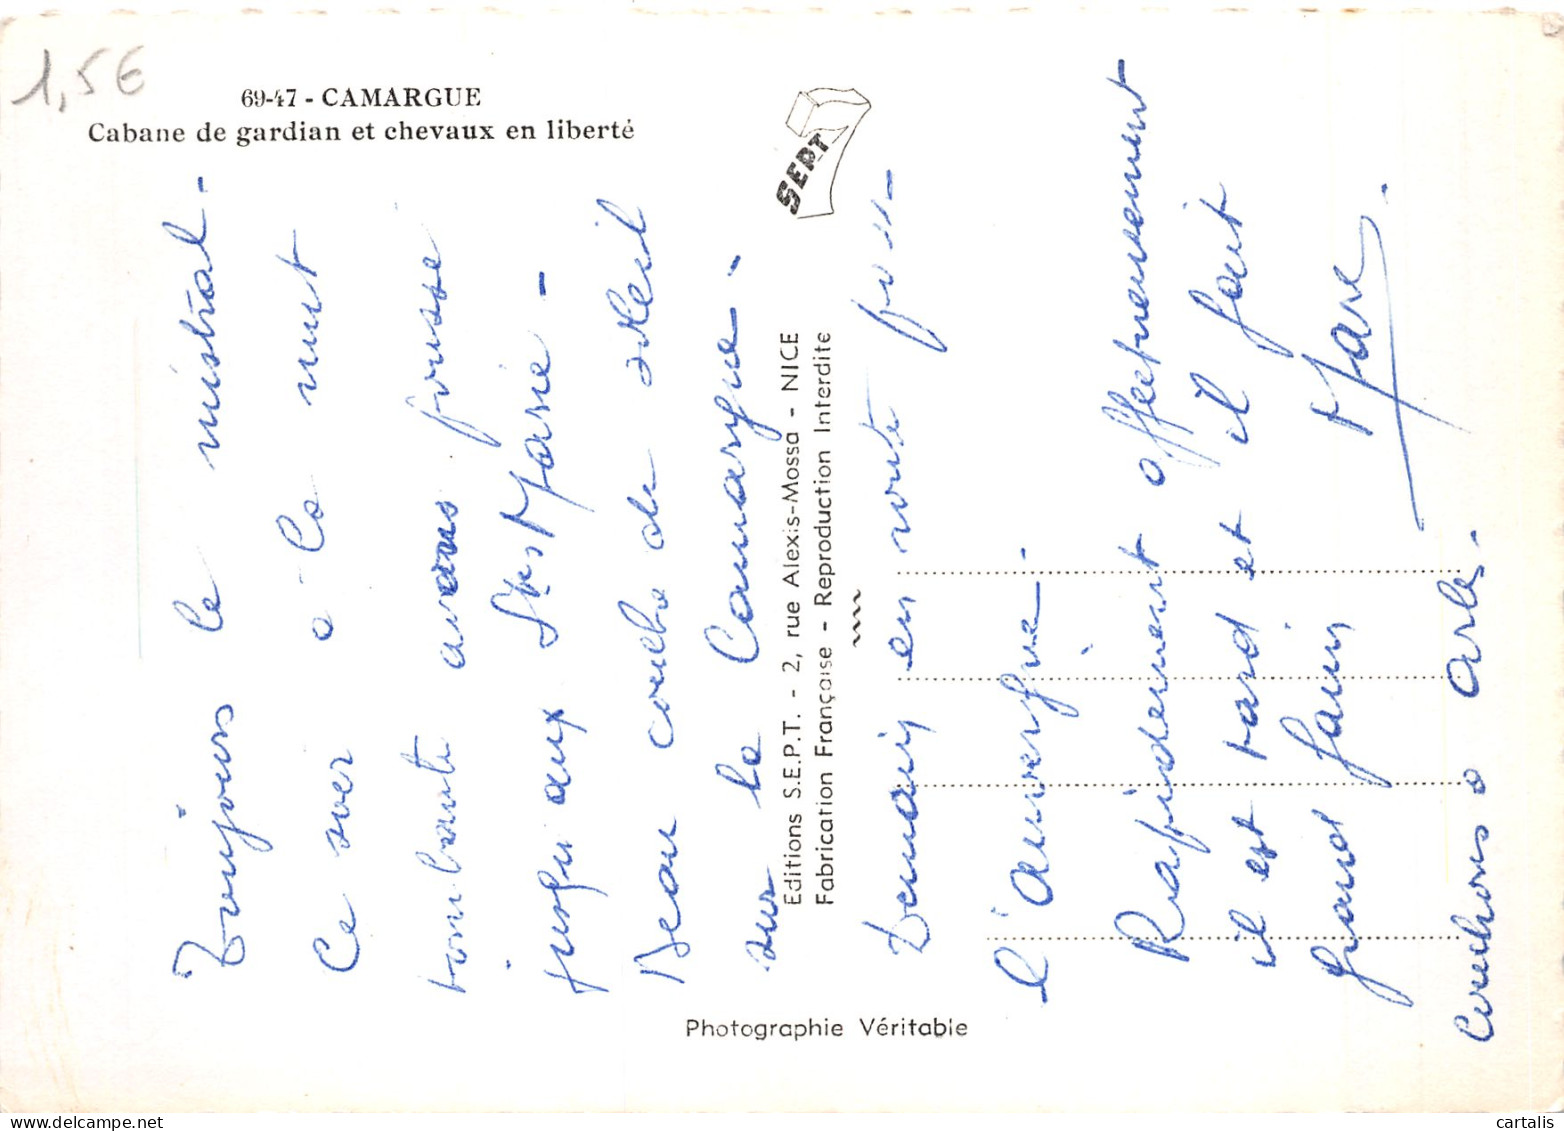 1,5€
69-47 - CAMARGUE
Cabane de gardian et chevaux en liberté
SEPT
Toujours le mistral -
Ce soir à la nuit
tombante avons poussé
jusqu'aux Stes Marie -
Beau couché de soleil
sur la Camargue -
Editions S.E.P.T. - 2, rue Alexis-Mossa - NICE
Fabrication Française - Reproduction Interdite
Demain en route pour
l'Auvergne -
Rapidement affectueusement
il est tard et il fait
grand faim
Marc.
Couchons à Arles.
Photographie Véritable
cartalis
www.delcampe.net